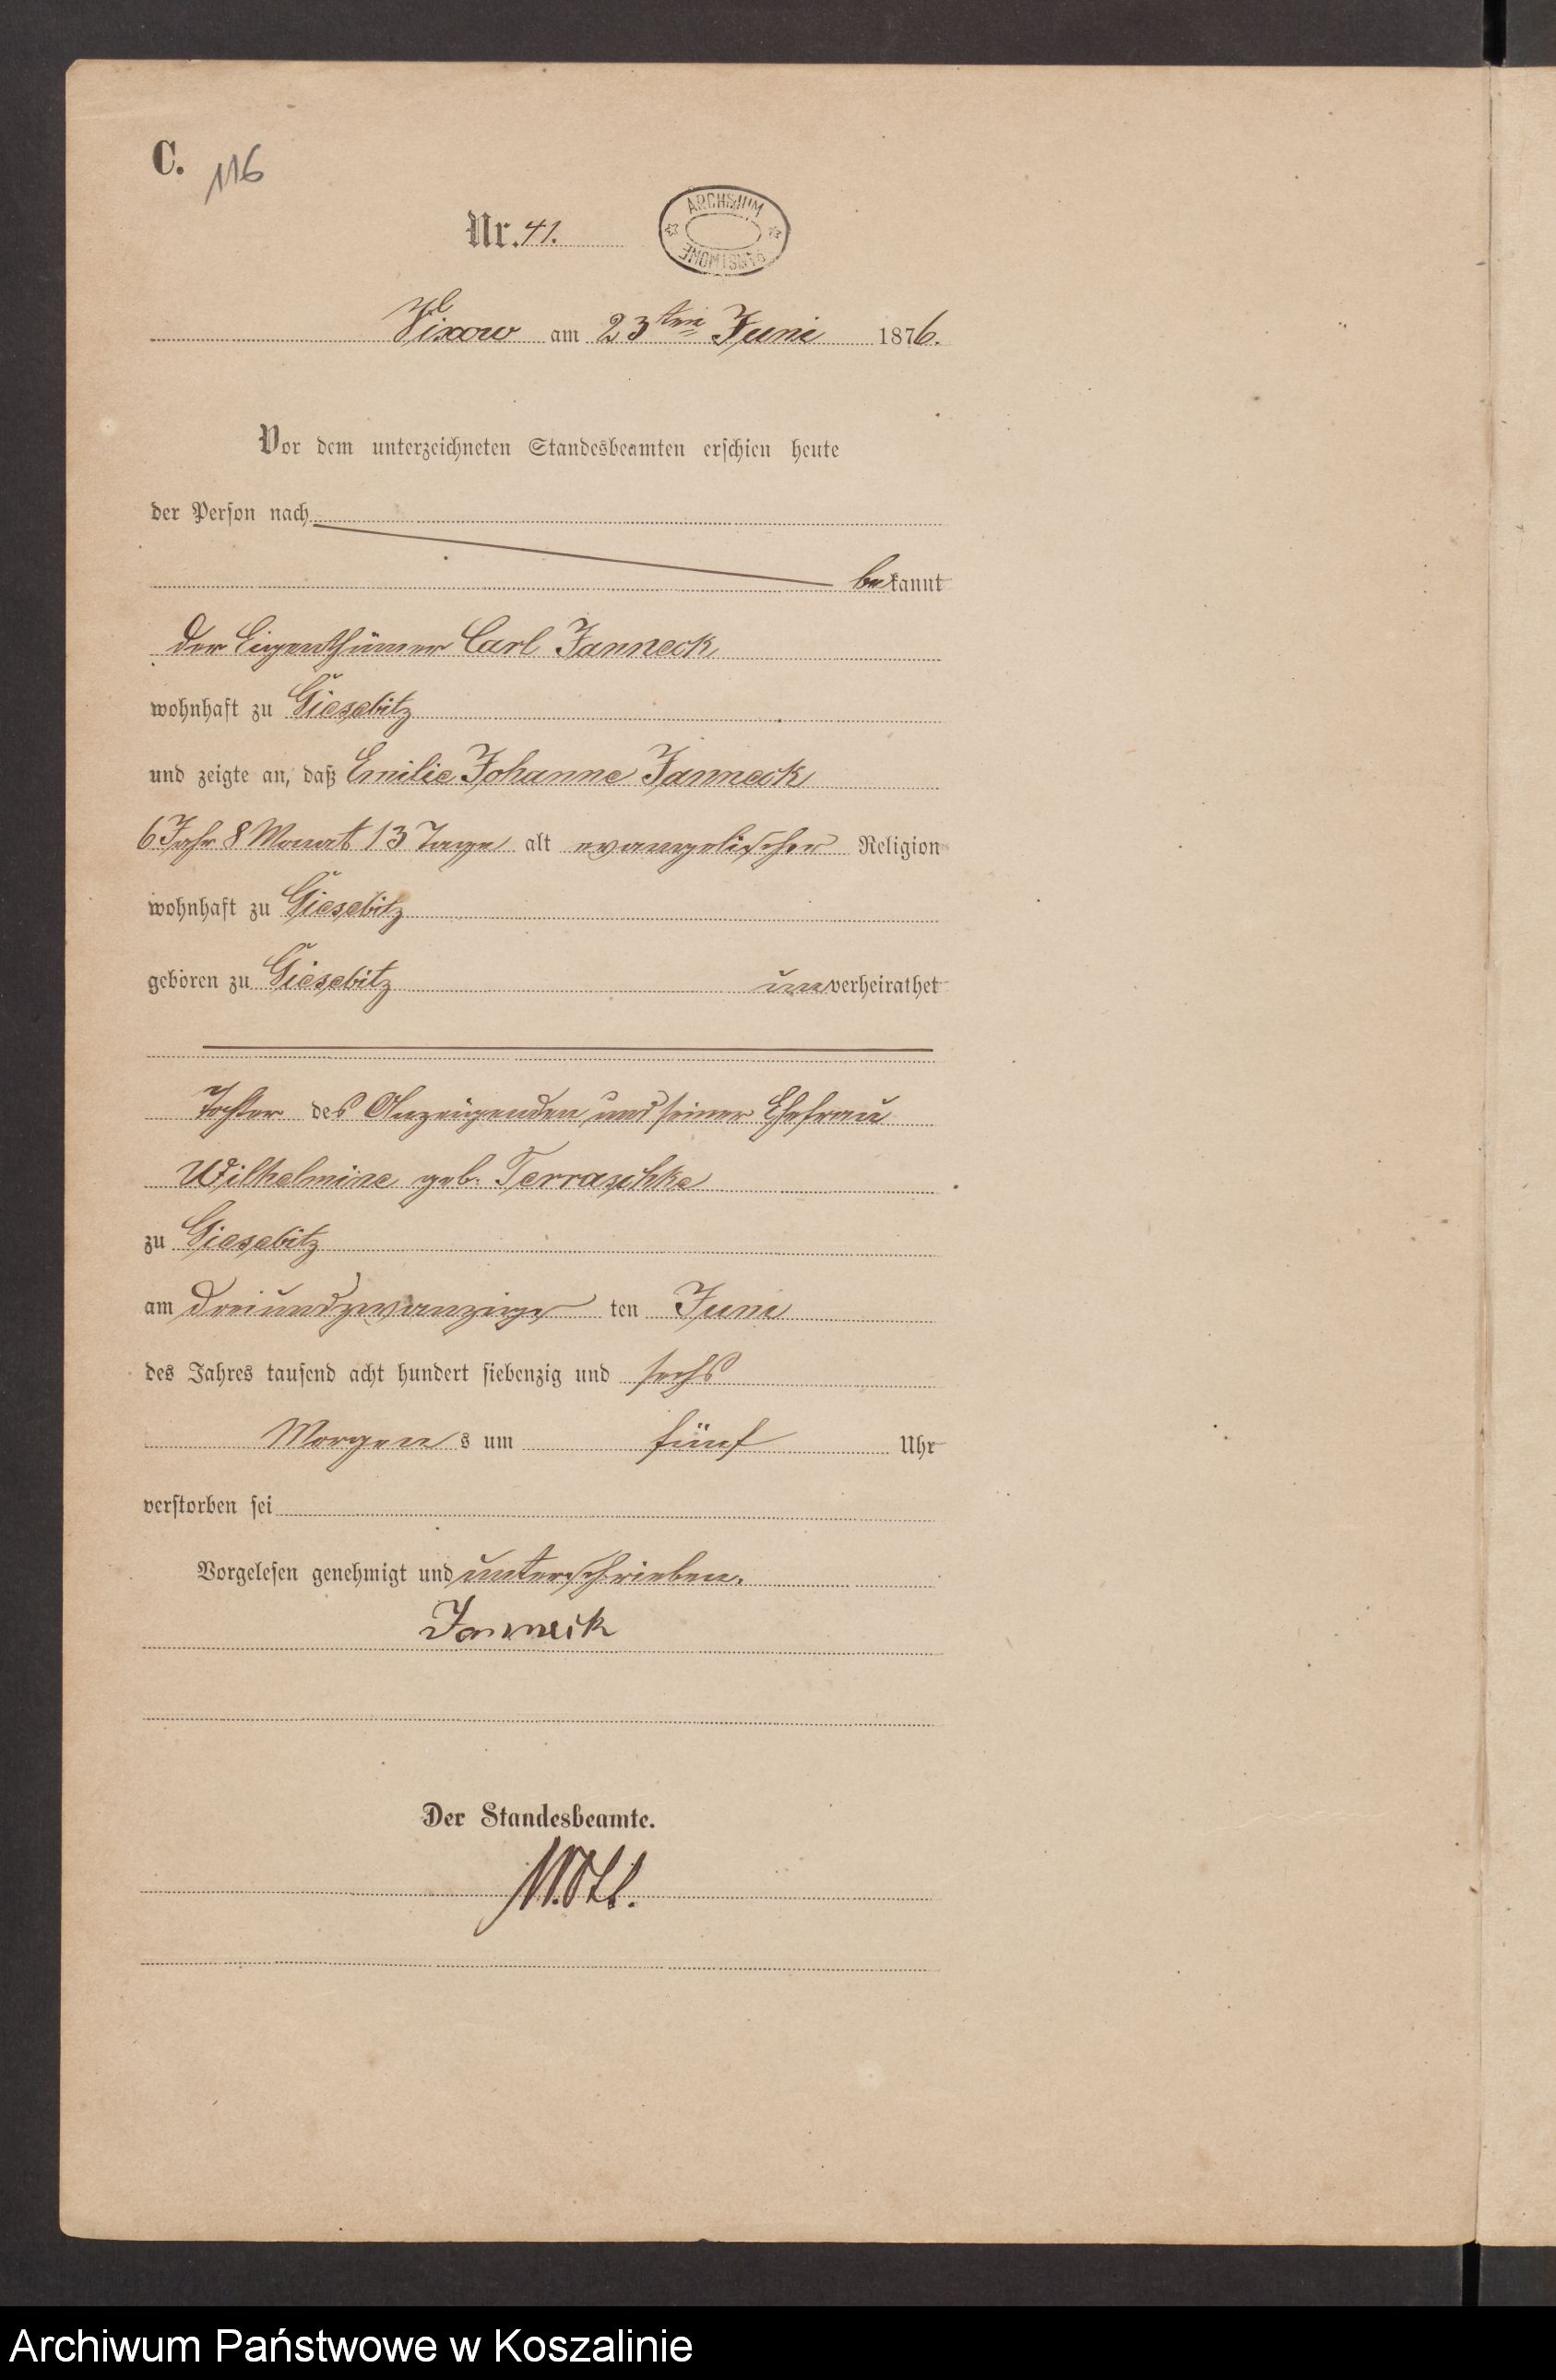 C. 116
Nr. 41.
ARCHIWUM PAŃSTWOWE
Vixow am 23ten Juni 1876.
Vor dem unterzeichneten Standesbeamten erschien heute
der Person nach
bekannt
der Eigenthümer Carl Janneck
wohnhaft zu Giesebitz
und zeigte an, daß Emilie Johanne Janneck
6 Jahr 8 Monat 13 Tage alt evangelischer Religion
wohnhaft zu Giesebitz
geboren zu Giesebitz unverheirathet
Tochter des Anzeigenden und seiner Ehefrau
Wilhelmine geb. Terraschke
zu Giesebitz
am dreiundzwanzig ten Juni
des Jahres tausend acht hundert siebenzig und sechs
Morgens um fünf Uhr
verstorben sei
Vorgelesen genehmigt und unterschrieben.
Janneck
Der Standesbeamte.
Archiwum Państwowe w Koszalinie